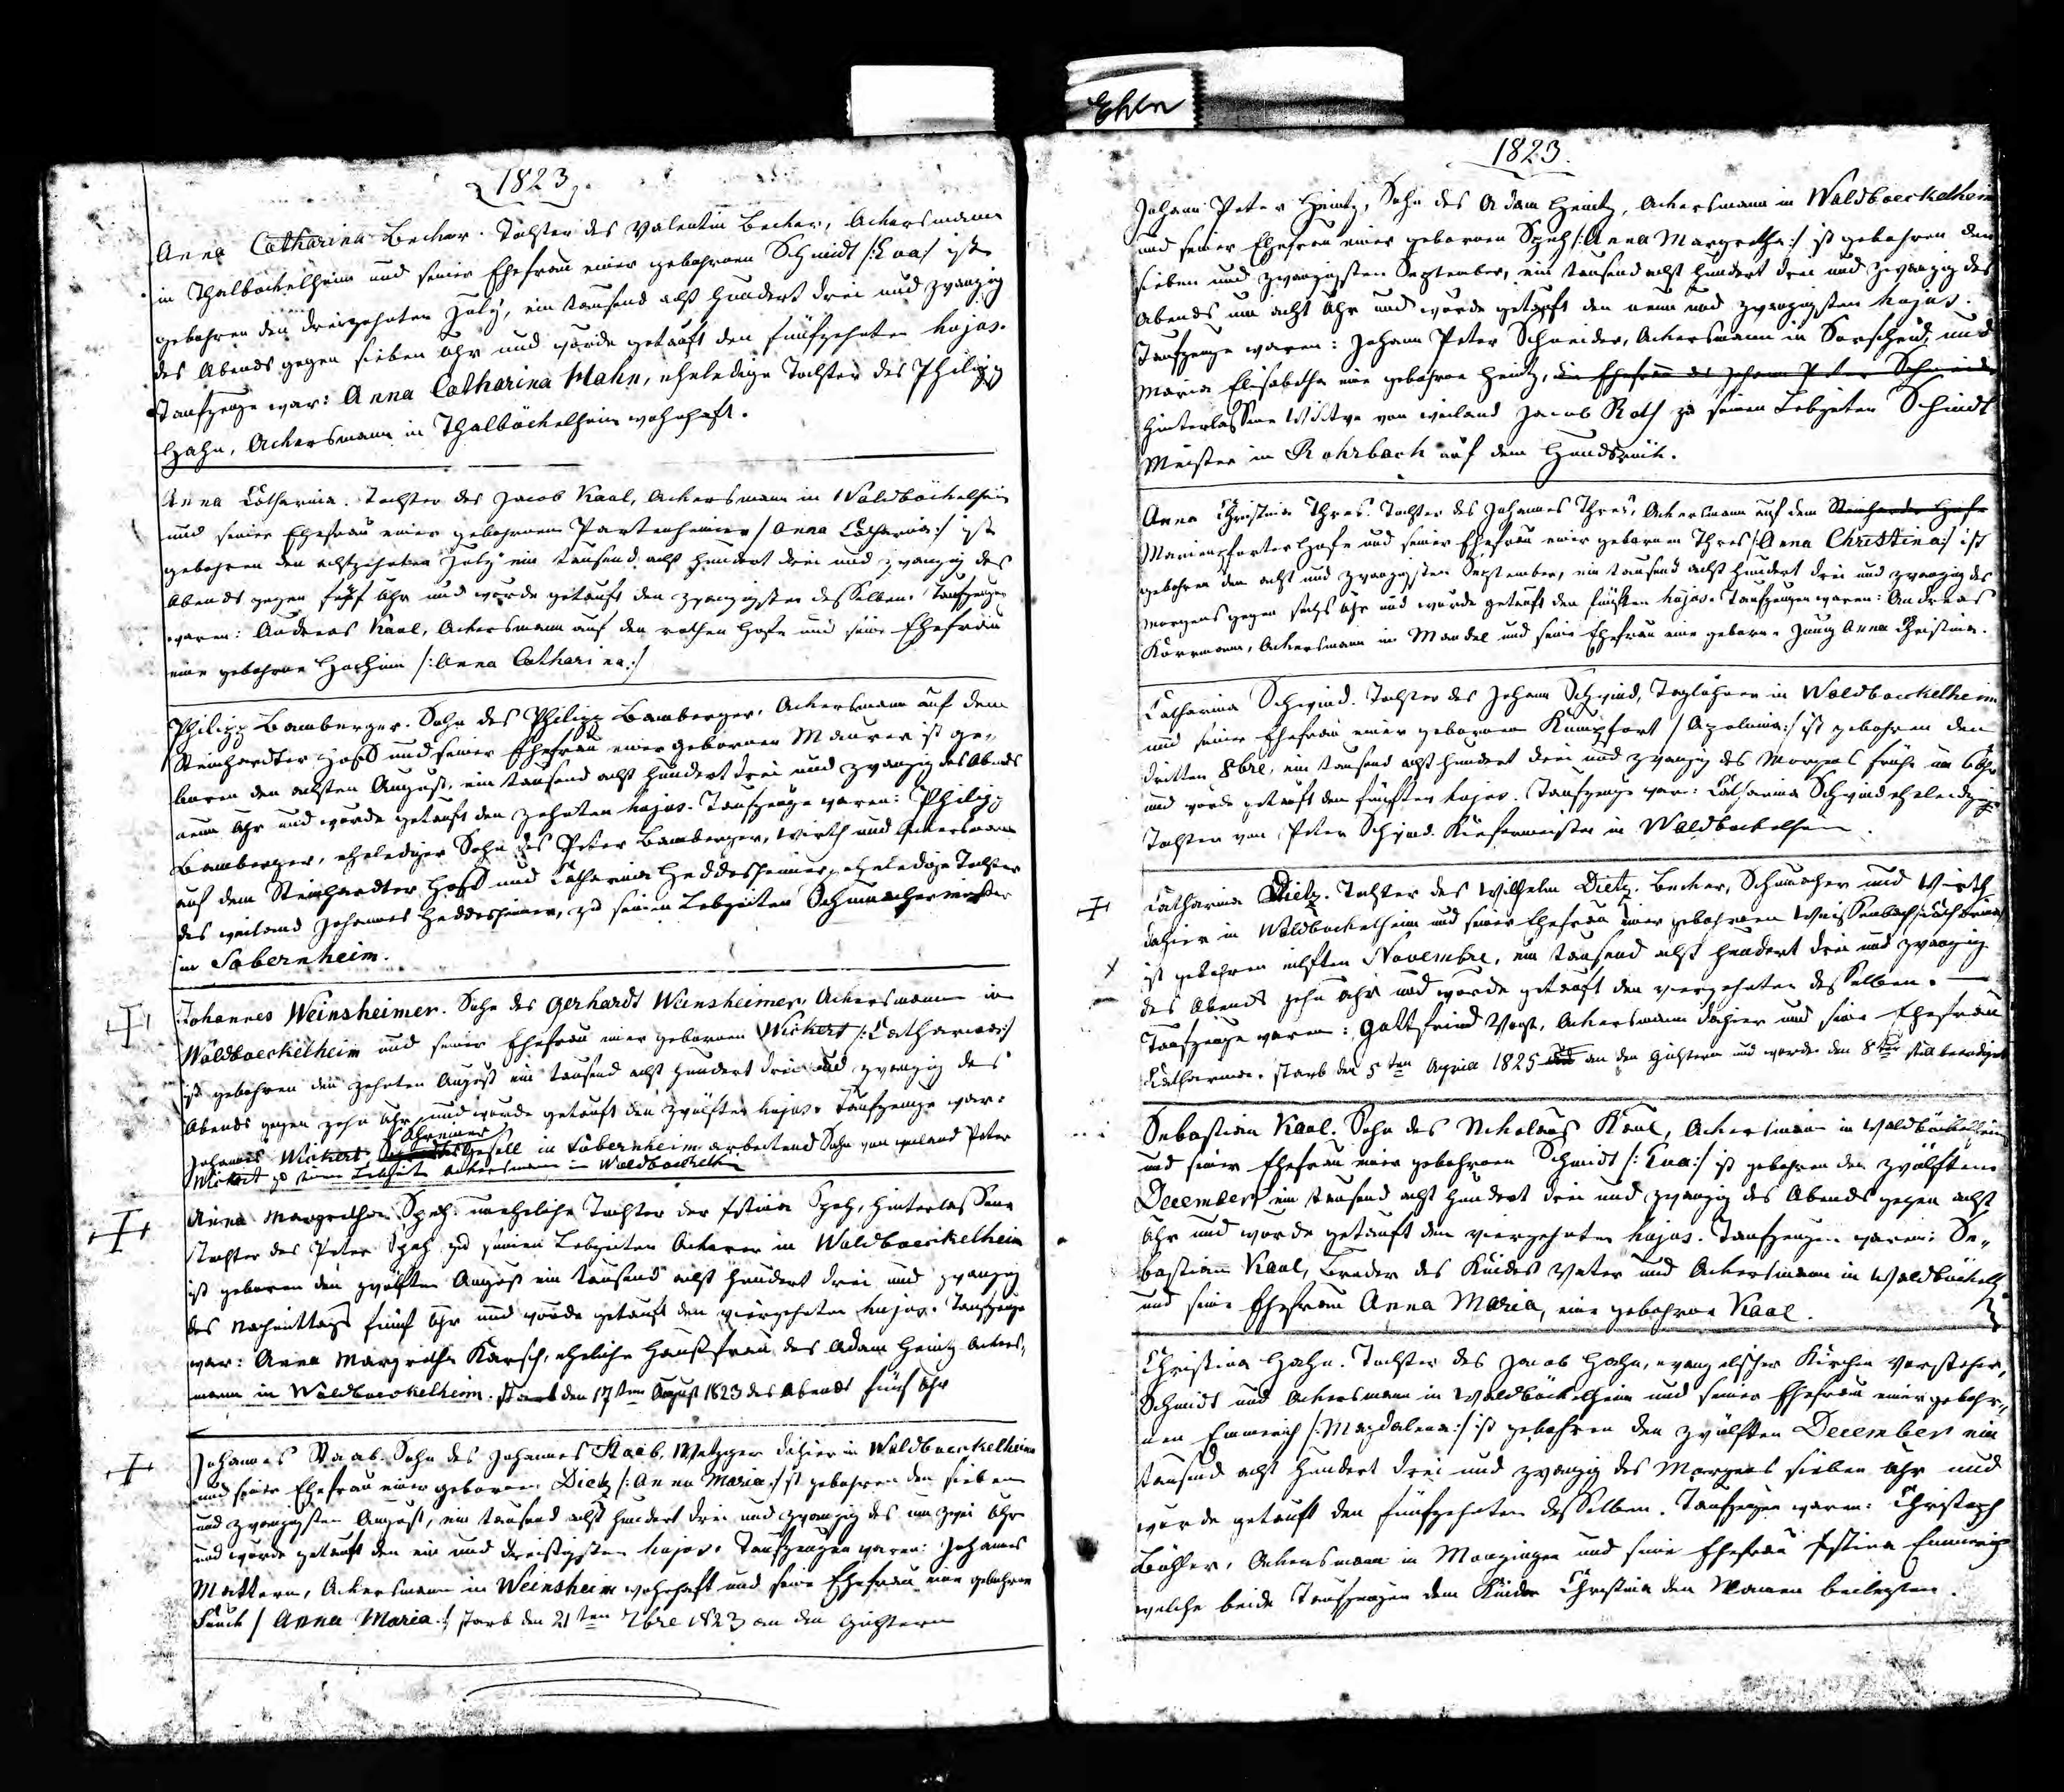 Ehln
1823.
Anna Catharina Becker. Tochter des Valentin Becker, Ackersmann
in Thalböckelheim und seiner Ehefrau einer gebohrnen Schmidt /:Eva:/ ist
gebohren den dreizehnten July, ein tausend acht hundert drei und zwanzig
des Abends gegen sieben Uhr und wurde getauft den fünfzehnten hujus.
Taufzeuge war: Anna Catharina Hahn, eheledige Tochter des Philipp
Hahn, Ackersmann in Thalböckelheim wohnhaft.
Anna Catharina. Tochter des Jacob Kaal, Ackersmann in Waldböckelheim
und seiner Ehefrau einer gebohrnen Partenheimer /:Anna Catharina:/ ist
gebohren den achtzehnten July ein tausend acht hundert drei und zwanzig des
Abends gegen fünf Uhr und wurde getauft den zwanzigsten desselben. Taufzeugen
waren: Andreas Kaal, Ackersmann auf den rothen Hofe und seine Ehefrau
eine gebohrne /:Anna Catharina:/
Philipp Bamberger. Sohn des Philipp Bamberger, Ackersmann auf dem
Steinhardter Hoff und seiner Ehefrau einer gebornen Maurer ist ge-
boren den achten August, ein tausend acht hundert drei und zwanzig des Abends
neun Uhr und wurde getauft den zehnten hujus. Taufzeuge waren: Philipp
Bamberger, ehelediger Sohn des Peter Bamberger, Wirth und Ackersmann
auf dem Steinhardter Hoff und Catharina Heddesheimer, eheledige Tochter
des weiland Johannes Heddesheimer, zu seinen Lebzeiten Schumachermeister
in Sobernheim.
Johannes Weinsheimer. Sohn des Gerhardt Weinsheimer, Ackersmann in
Waldboeckelheim und seiner Ehefrau einer gebornen Wickert /:Catharina:/
ist gebohren den zehnten August ein tausend acht hundert drei und zwanzig des
Abends gegen zehn Uhr und wurde getauft den zwölften hujus. Taufzeuge war:
Schreiner
Johannes Wickert gesell in Sobernheim arbeitend Sohn von weiland Peter
Wickert zu seinen Lebzeiten Ackersmann in Waldboeckelh
Anna Margretha Spey. uneheliche Tochter der Justina Spey, hinterlassene
Tochter des Peter Spey zu seinen Lebzeiten Ackerer in Waldboeckelheim
ist geboren den zwölften August ein tausend acht hundert drei und zwanzig
des Nachmittags fünf Uhr und wurde getauft den vierzehnten hujus. Taufzeuge
war: Anna Margretha Karsch, eheliche Hausfrau des Adam Heintz Ackers-
mann in Waldboeckelheim. starb den 17ten August 1823 des Abends fünf Uhr
Johannes Staab. Sohn des Johannes Staab, Metzger dahier in Waldboeckelheim
und seiner Ehefrau einer gebornen Dietz /:Anna Maria:/ ist gebohren den sieben
und zwanzigsten August, ein tausend acht hundert drei und zwanzig des um zwei Uhr
und wurde getauft den ein und dreisigsten hujus. Taufzeugen waren: Johannes
Mattern, Ackersmann in Weinsheim wohnhaft und seine Ehefrau eine gebohrne
Funck /:Anna Maria:/ starb den 21ten 7bre 1823 an den Gichtern
1823.
Johann Peter Heintz, Sohn des Adam Heintz, Ackersmann in Waldboeckelheim
und seiner Ehefrau einer gebornen Spey /:Anna Margretha:/ ist gebohren den
sieben und zwanzigsten September, ein tausend acht hundert drei und zwanzig des
Abends um acht Uhr und wurde getauft den neun und zwanzigsten hujus.
Taufzeuge waren: Johann Peter Schneider, Ackersmann in Sorscheid, und
Maria Elisabetha eine gebohrne Heintz, die Ehefrau des Johann Peter Schneider
Hinterlassene Wittwe von weiland Jacob Roth zu seinen Lebzeiten Schmidt
Meister in Rohrbach auf dem Hundsrück.
Anna Christina Thres. Tochter des Johannes Thres, Ackersmann auf dem Steinharder Hofe
Marienpforterhofe und seiner Ehefrau einer gebornen Thres /:Anna Christina:/ ist
gebohren den acht und zwanzigsten September, ein tausend acht hundert drei und zwanzig des
morgens gegen sechs Uhr und wurde getauft den fünften hujus. Taufzeugen waren: Andreas
Karrmann, Ackersmann in Mandel und seine Ehefrau eine geborne Jung Anna Christina.
Catharina Schwind. Tochter des Johann Schwind, Taglöhner in Waldboeckelheim
und seiner Ehefrau einer gebornen Kumpfort /:Apolonia:/ ist gebohren den
dritten 8bre, ein tausend acht hundert drei und zwanzig des Morgens frühe um 6 Uhr
und wurde getauft den fünften hujus. Taufzeuge war: Catharina Schwind eheledige
Tochter von Peter Schwind Küfermeister in Waldbockelheim.
Catharina Dietz. Tochter des Wilhelm Dietz. Becker, Schumacher und Wirth
dahier in Waldbockelheim und seiner Ehefrau einer gebohrnen Weissenbach /:Catharina:/
ist gebohren eilften Novembre, ein tausend acht hundert drei und zwanzig
des Abends zehn Uhr und wurde getauft den vierzehnten desselben.
Taufzeuge waren: Gottfried Voigt, Ackersmann dahier und seine Ehefrau
Catharina. starb den 5ten Aprill 1825 an den Gichtern und wurde den 8ten still beerdiget
Sebastian Kaal. Sohn des Nikolaus Kaal, Ackersmann in Waldböckelheim
und seiner Ehefrau einer gebohrnen Schmidt /:Eva:/ ist gebohren den zwölften
December ein tausend acht hundert drei und zwanzig des Abends gegen acht
Uhr und wurde getauft den vierzehnten hujus. Taufzeugen waren: Se-
bastian Kaal, Bruder des Kindes Vater und Ackersmann in Waldböckelh
und seine Ehefrau Anna Maria, eine gebohrne Kaal.
Christina Hahn. Tochter des Jacob Hahn, evangelischer Kirchen Vorsteher,
Schmidt und Ackersmann in Waldböckelheim und seiner Ehefrau einer gebohr-
nen Emmerich /:Magdalena:/ ist gebohren den zwölften December ein
tausend acht hundert drei und zwanzig des Morgens sieben Uhr und
wurde getauft den fünfzehnten desselben. Taufzeugen waren: Christoph
Bühler, Ackersmann in Monzingen und seine Ehefrau Justina Emmerich
welche beide Taufzeugen dem Kinde Christina den Namen beilegten.